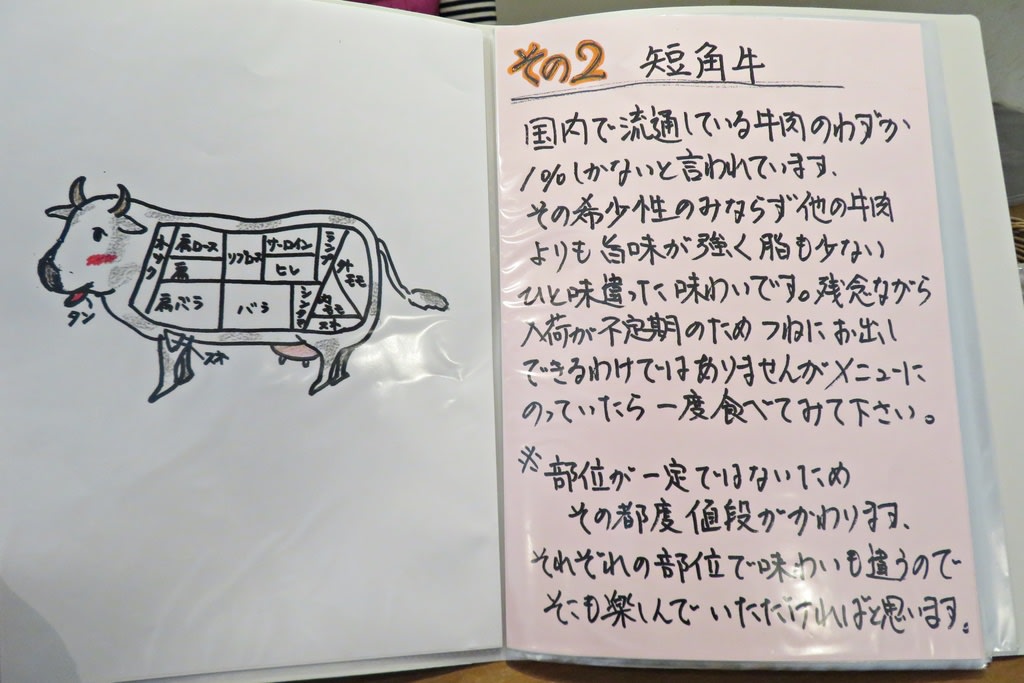 ネック
肩ロース
肩
肩バラ
リブロース
サーロイン
ヒレ
バラ
ランプ
外モモ
内モモ
シンタマ
スネ
タン
スネ
その2 短角牛
国内で流通している牛肉のわずか
1%しかないと言われています、
その希少性のみならず他の牛肉
よりも旨味が強く脂も少ない
ひと味違った味わいです。残念ながら
入荷が不定期のためつねにお出し
できるわけではありませんがメニューに
のっていたら一度食べてみて下さい。
※部位が一定ではないため
その都度値段がかわります、
それぞれの部位で味わいも違うので
そこも楽しんでいただければと思います。